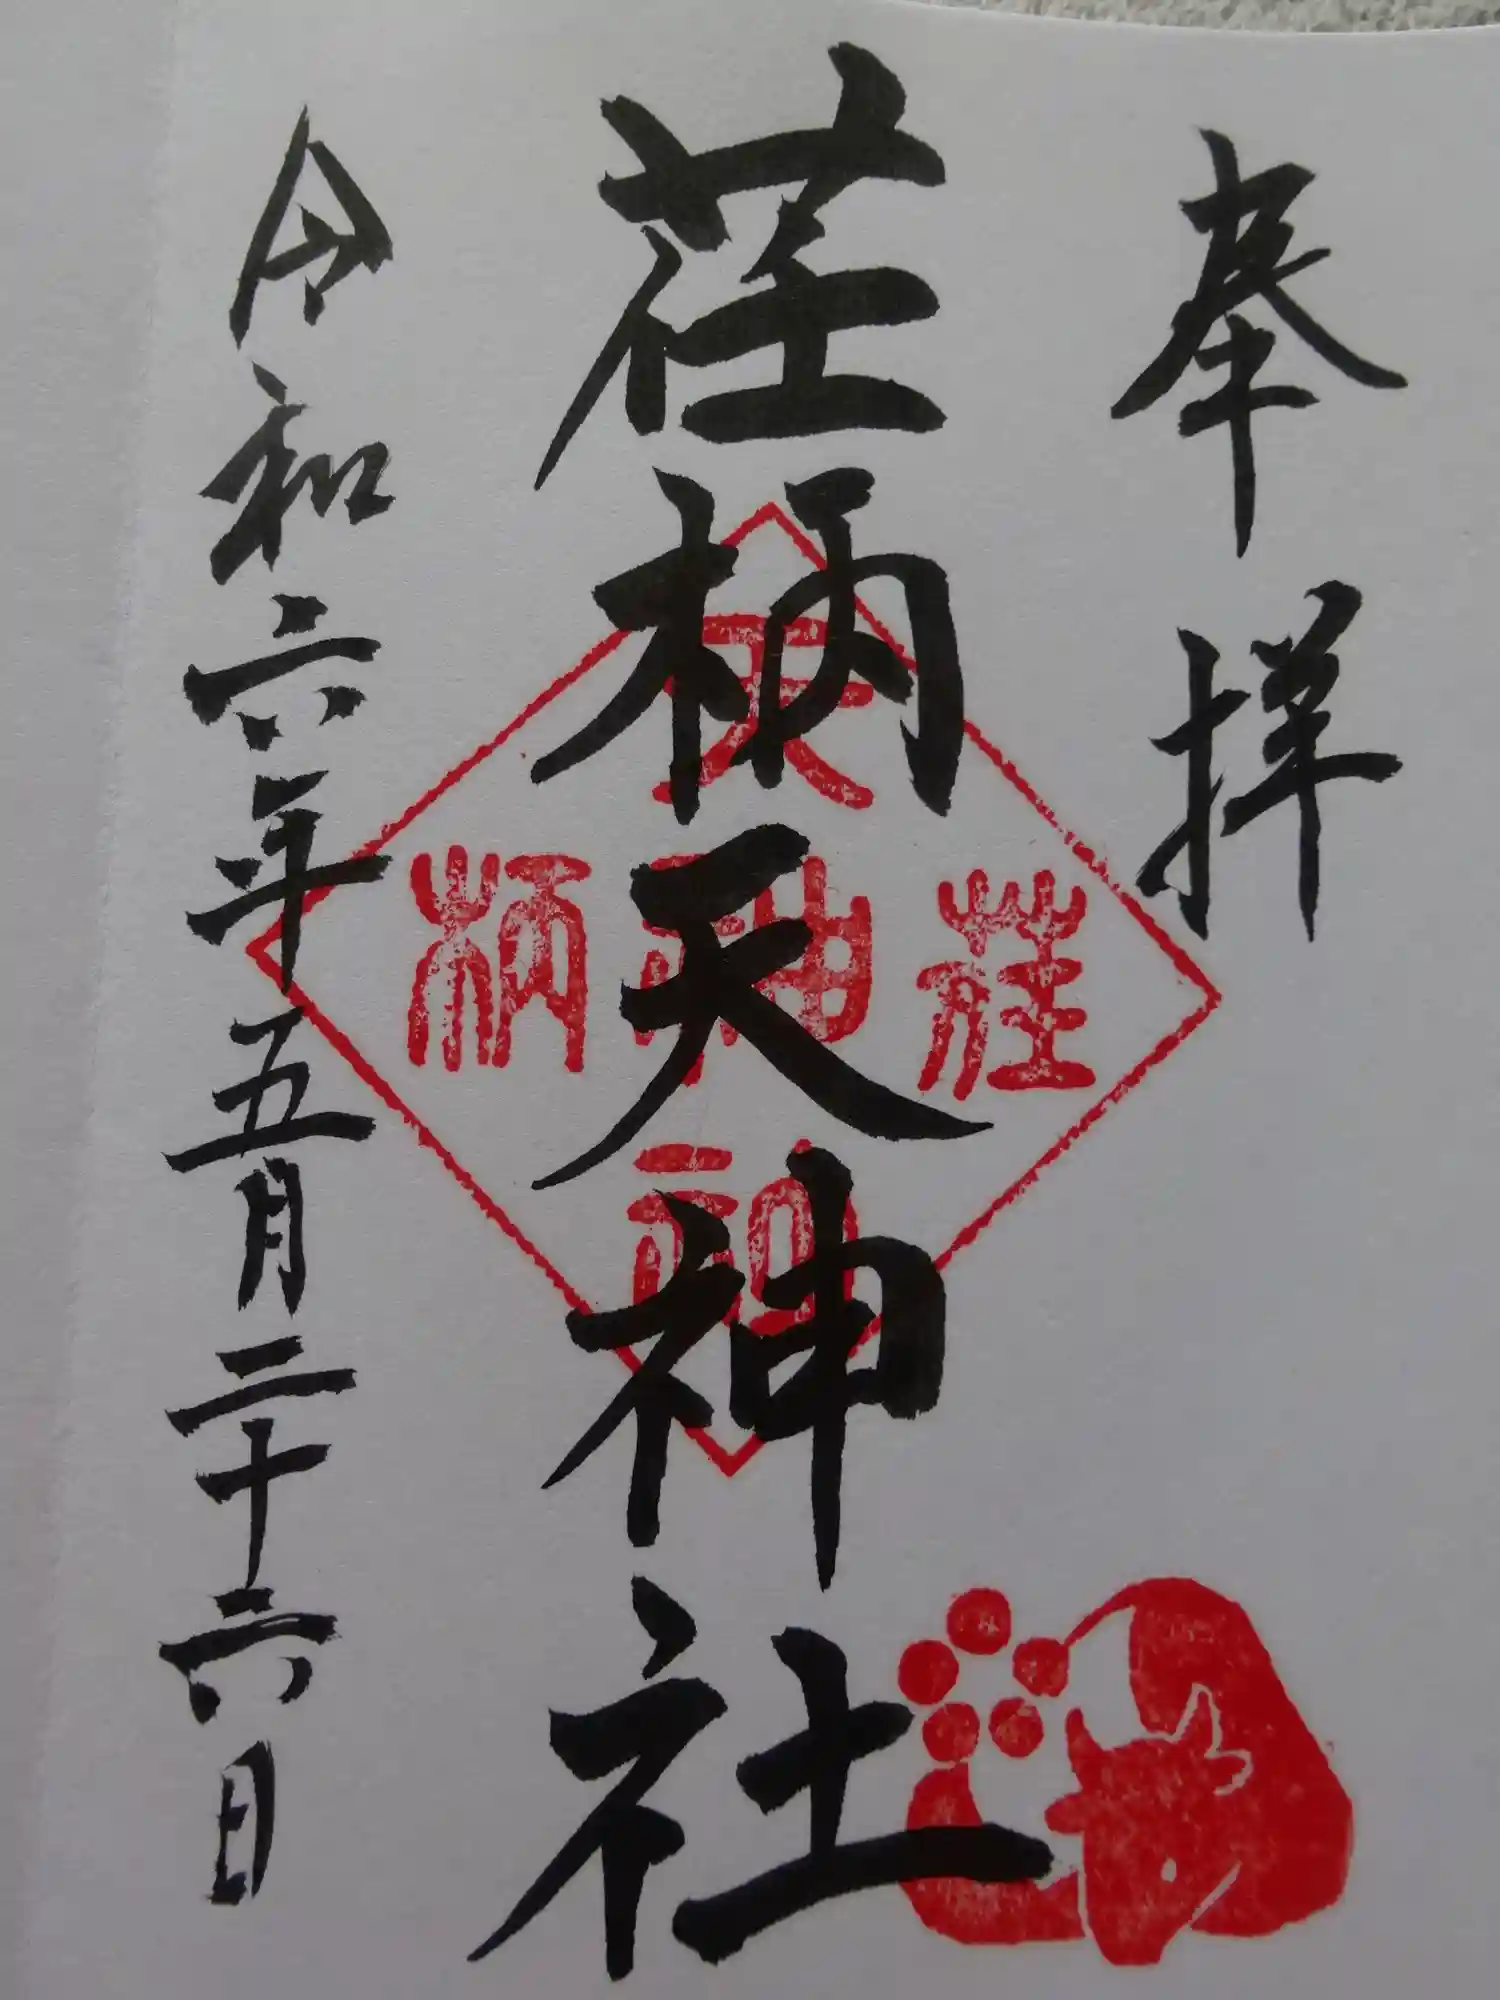 奉拝
荏柄天神社
令和六年五月二十六日
天
荏神柄
社